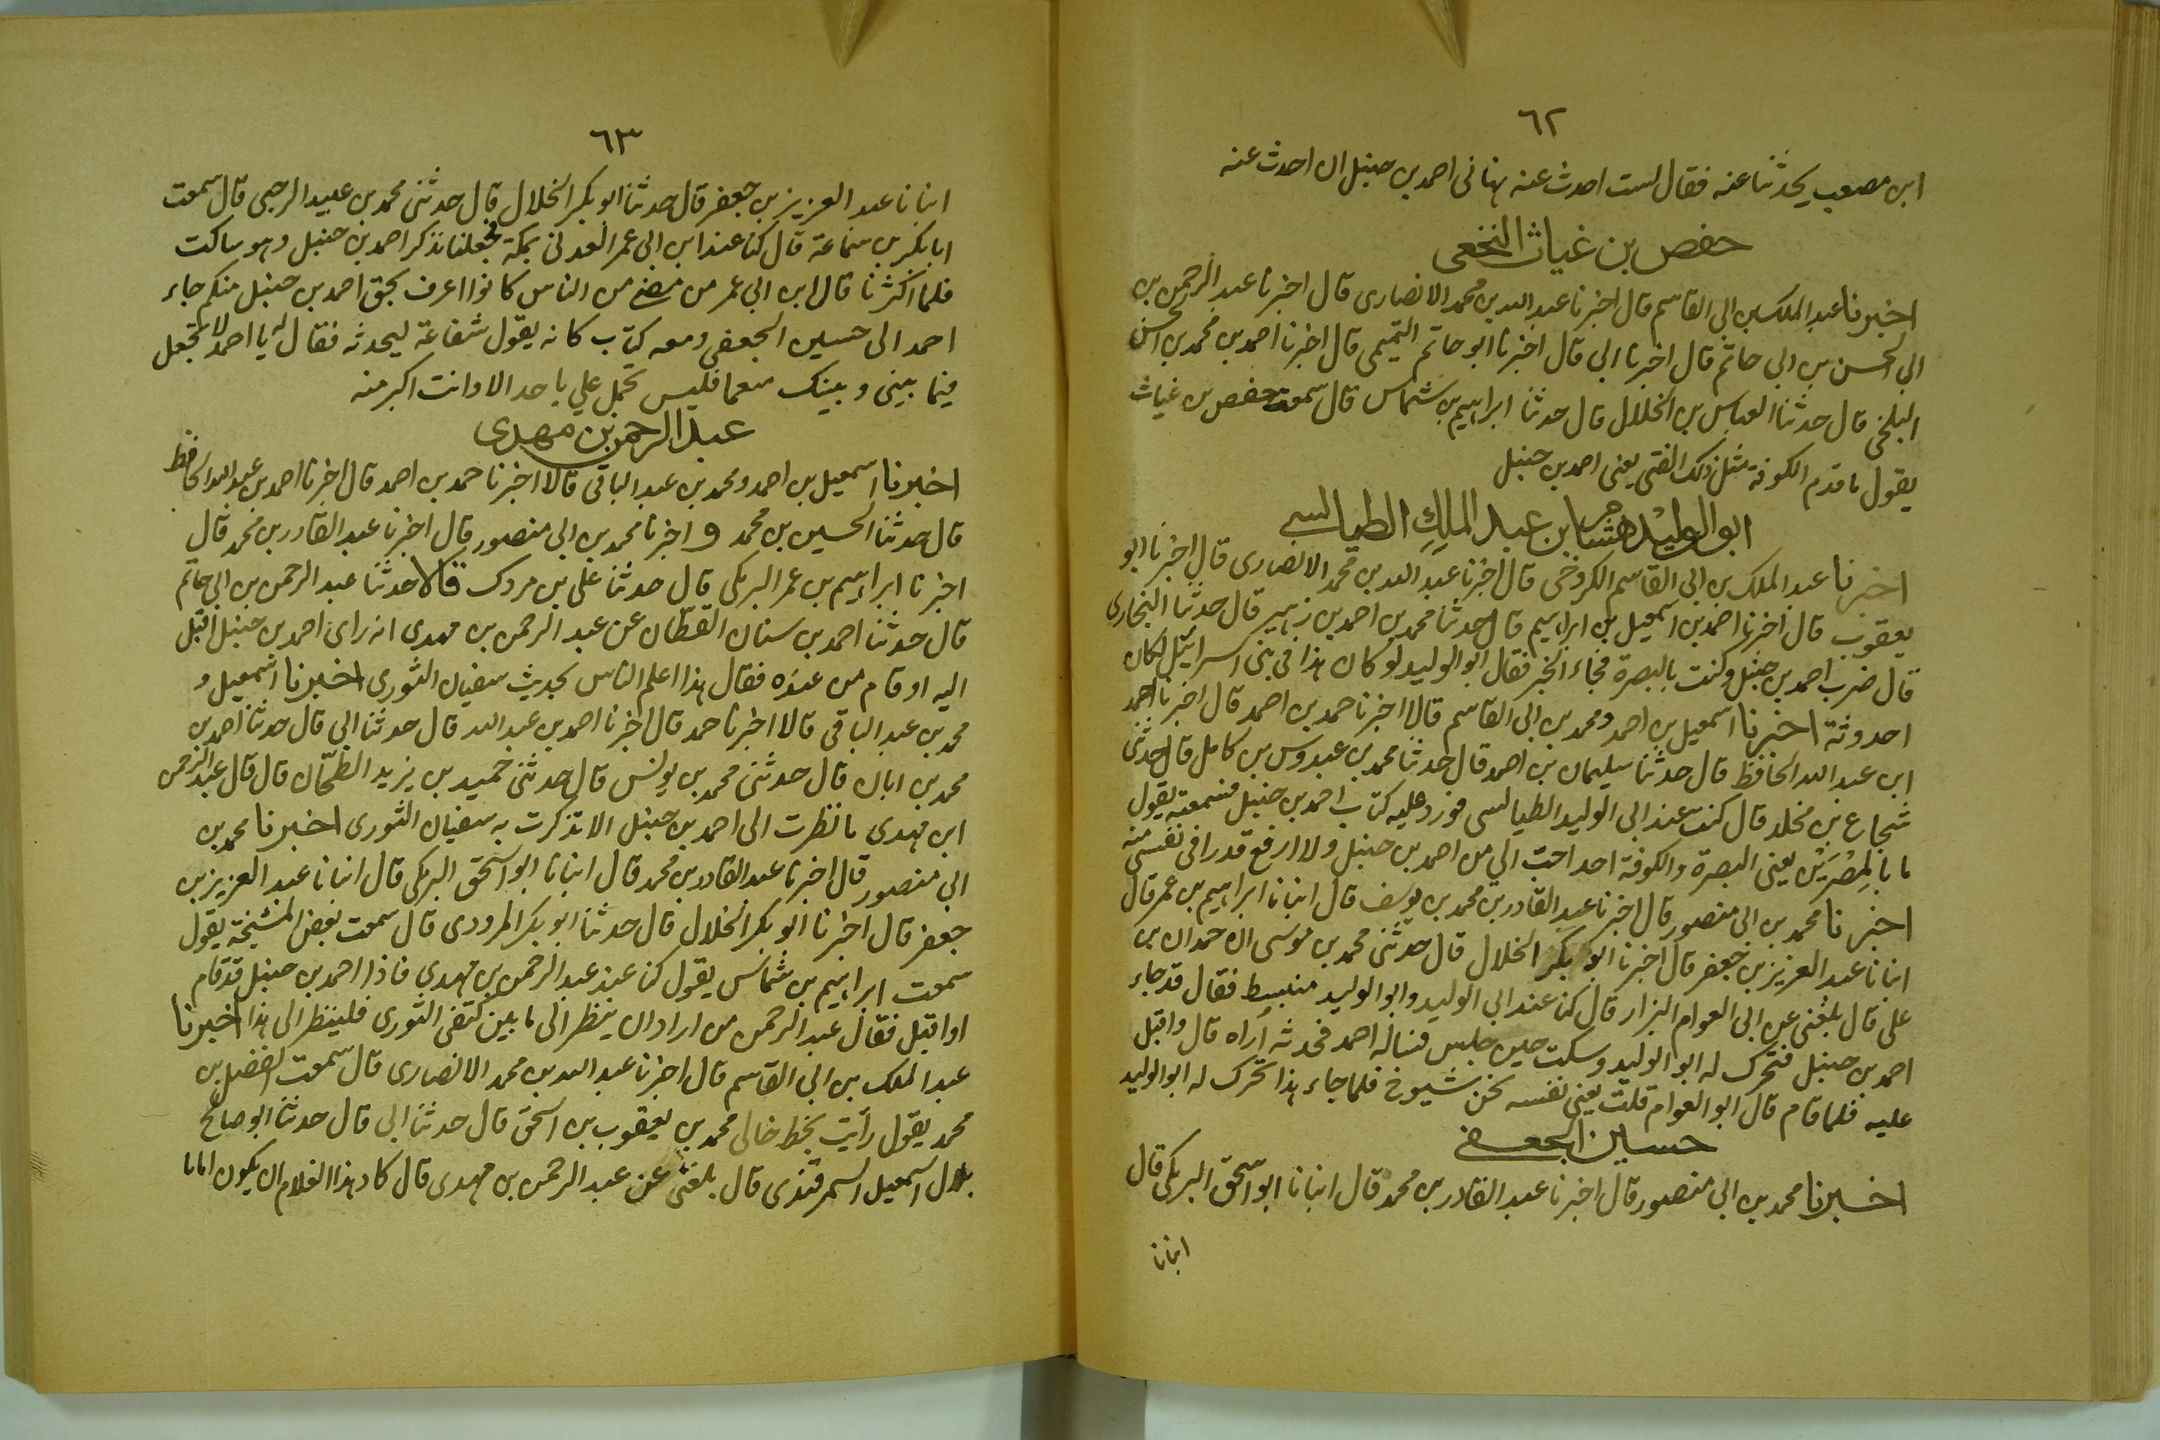 ٦٢
ابن مصعب يحدثنا عنه فقال لست احدث عنه نهانى احمد بن حنبل ان احدث عنه
حفص بن غياث النخعى
اخبرنا عبد الملك بن ابى القاسم قال اخبرنا عبد الله بن محمد الانصارى قال اخبرنا عبد الرحمن بن
ابى الحسن بن ابى حاتم قال اخبرنا ابى قال اخبرنا ابو حاتم التميمى قال اخبرنا احمد بن محمد بن الحسن
البلخى قال حدثنا العباس بن الخلال قال حدثنا ابراهيم بن شماس قال سمعت حفص بن غياث
يقول ما قدم الكوفة مثل ذلك الفتى يعنى احمد بن حنبل
ابو الوليد هشام بن عبد الملك الطيالسى
اخبرنا عبد الملك بن ابى القاسم الكروخى قال اخبرنا عبد الله بن محمد الانصارى قال اخبرنا ابو
يعقوب قال اخبرنا احمد بن اسمعيل بن ابراهيم قال حدثنا محمد بن احمد بن زهير قال حدثنا البخارى
قال ضرب احمد بن حنبل وكنت بالبصرة فجاء الخبر فقال ابو الوليد لو كان هذا فى بنى اسرائيل لكان
احدوثة اخبرنا اسمعيل بن احمد ومحمد بن ابى القاسم قالا اخبرنا حمد بن احمد قال اخبرنا احمد
ابن عبد الله الحافظ قال حدثنا سليمان بن احمد قال حدثنا محمد بن عبدوس بن كامل قال حدثنى
شجاع بن مخلد قال كنت عند ابى الوليد الطيالسى فورد عليه كتاب احمد بن حنبل فسمعته يقول
ما بالمصرين يعنى البصرة والكوفة احد احب الى من احمد بن حنبل ولا ارفع قدرا فى نفسى منه
اخبرنا محمد بن ابى منصور قال اخبرنا عبد القادر بن محمد بن يوسف قال انبانا ابراهيم بن عمر قال
انبانا عبد العزيز بن جعفر قال اخبرنا ابو بكر الخلال قال حدثنى محمد بن موسى ان حمدان بن
على قال بلغنى عن ابى العوام البزار قال كنا عند ابى الوليد وابو الوليد منبسط فقال قد جاء
احمد بن حنبل فتحرك له ابو الوليد وسكت حين جلس فساله احمد فحدثه اراه قال واقبل
عليه فلما قام قال ابو العوام قلت يعنى نفسه نحن شيوخ فلما جاء هذا تحرك له ابو الوليد
حسين الجعفى
اخبرنا محمد بن ابى منصور قال اخبرنا عبد القادر بن محمد قال انبانا ابو اسحق البرمكى قال
انبانا
٦٣
انبانا عبد العزيز بن جعفر قال حدثنا ابو بكر الخلال قال حدثنى محمد بن عبيد الرحبى قال سمعت
ابا بكر بن سماعة قال كنا عند ابن ابى عمر العدنى بمكة فجعلنا نذكر احمد بن حنبل وهو ساكت
فلما اكثرنا قال ابن ابى عمر من مضى من الناس كانوا اعرف بحق احمد بن حنبل منكم جاء
احمد الى حسين الجعفى ومعه كتاب كانه يقول شفاعة ليحدثه فقال له يا احمد لا تجعل
فيما بينى وبينك منعما فليس تحمل على باحد الا وانت اكبر منه
عبد الرحمن بن مهدى
اخبرنا اسمعيل بن احمد ومحمد بن عبد الباقى قالا اخبرنا حمد بن احمد قال اخبرنا احمد بن عبد الله الحافظ
قال حدثنا الحسين بن محمد و اخبرنا محمد بن ابى منصور قال اخبرنا عبد القادر بن محمد قال
اخبرنا ابراهيم بن عمر البرمكى قال حدثنا على بن مردك قالا حدثنا عبد الرحمن بن ابى حاتم
قال حدثنا احمد بن سنان القطان عن عبد الرحمن بن مهدى انه راى احمد بن حنبل اقبل
اليه او قام من عنده فقال هذا اعلم الناس بحديث سفيان الثورى اخبرنا اسمعيل و
محمد بن عبد الباقى قالا اخبرنا حمد قال اخبرنا احمد بن عبد الله قال حدثنا ابى قال حدثنا احمد بن
محمد بن ابان قال حدثنى محمد بن يونس قال حدثنى حميد بن يزيد الطحان قال قال عبد الرحمن
ابن مهدى ما نظرت الى احمد بن حنبل الا تذكرت به سفيان الثورى اخبرنا محمد بن
ابى منصور قال اخبرنا عبد القادر بن محمد قال انبانا ابو اسحق البرمكى قال انبانا عبد العزيز بن
جعفر قال اخبرنا ابو بكر الخلال قال حدثنا ابو بكر المرودى قال سمعت بعض المشيخة يقول
سمعت ابراهيم بن شماس يقول كنا عند عبد الرحمن بن مهدى فاذا احمد بن حنبل قد قام
او اقبل فقال عبد الرحمن من اراد ان ينظر الى ما بين كتفى الثورى فلينظر الى هذا اخبرنا
عبد الملك بن ابى القاسم قال اخبرنا عبد الله بن محمد الانصارى قال سمعت الفضل بن
محمد يقول رأيت بخط خالى محمد بن يعقوب بن اسحق قال حدثنا ابى قال حدثنا ابو صالح
بلال اسمعيل السمرقندى قال بلغنى عن عبد الرحمن بن مهدى قال كاد هذا الغلام ان يكون اماما